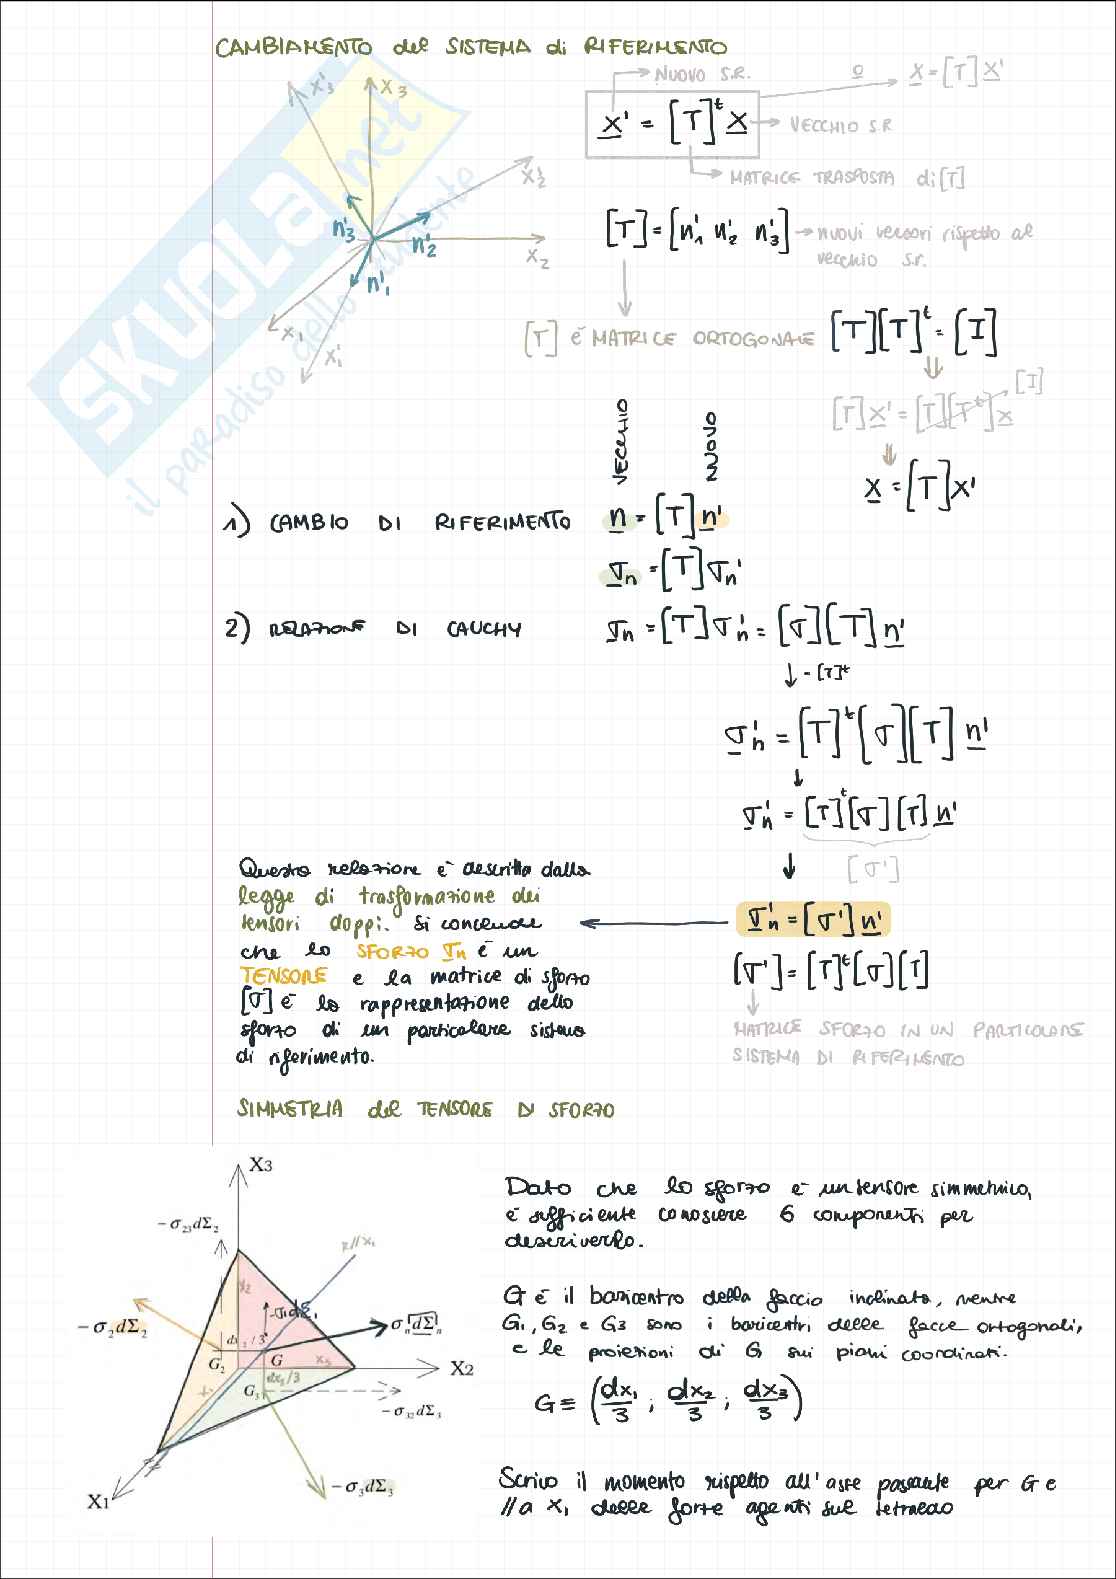 CAMBIAMENTO del SISTEMA di RIFERIMENTO
X'3 X3
X'2
X2
X1
X'1
n'3
n'2
n'1
NUOVO S.R.
o X = [T] X'
X' = [T]^t X
VECCHIO S.R
MATRICE TRASPOSTA di [T]
[T] = [n'1 n'2 n'3] → nuovi versori rispetto al
vecchio s.r.
[T] è MATRICE ORTOGONALE [T][T]^t = [I]
⇓
[T] X' = [T][T^t] X [I]
⇓
X = [T] X'
VECCHIO NUOVO
1) CAMBIO DI RIFERIMENTO n = [T] n'
σn = [T] σn'
2) RELAZIONE DI CAUCHY σn = [T] σ'n = [σ][T] n'
↓ · [T]^t
σ'n = [T]^t [σ][T] n'
↓
σ'n = [T]^t [σ][T] n'
[σ']
↓
σ'n = [σ'] n'
[σ'] = [T]^t [σ][T]
MATRICE SFORZO IN UN PARTICOLARE
SISTEMA DI RIFERIMENTO
Questa relazione è descritta dalla
legge di trasformazione dei
tensori doppi. Si conclude
che lo SFORZO σn è un
TENSORE e la matrice di sforzo
[σ] è la rappresentazione dello
sforzo di un particolare sistema
di riferimento.
SIMMETRIA del TENSORE DI SFORZO
X3
- σ23dΣ2
r // x1
- σ2dΣ2
σn dΣn
dx2/3
G2
G
X2
G3
dx3/3
- σ32dΣ3
- σ3dΣ3
X1
Dato che lo sforzo è un tensore simmetrico,
è sufficiente conoscere 6 componenti per
descriverlo.
G è il baricentro della faccia inclinata, mentre
G1, G2 e G3 sono i baricentri delle facce ortogonali,
e le proiezioni di G sui piani coordinati.
G ≡ (dx1/3 ; dx2/3 ; dx3/3)
Scrivo il momento rispetto all'asse passante per G e
// a x1 delle forze agenti sul tetraedro
SKUOLA.net
il paradiso dello studente